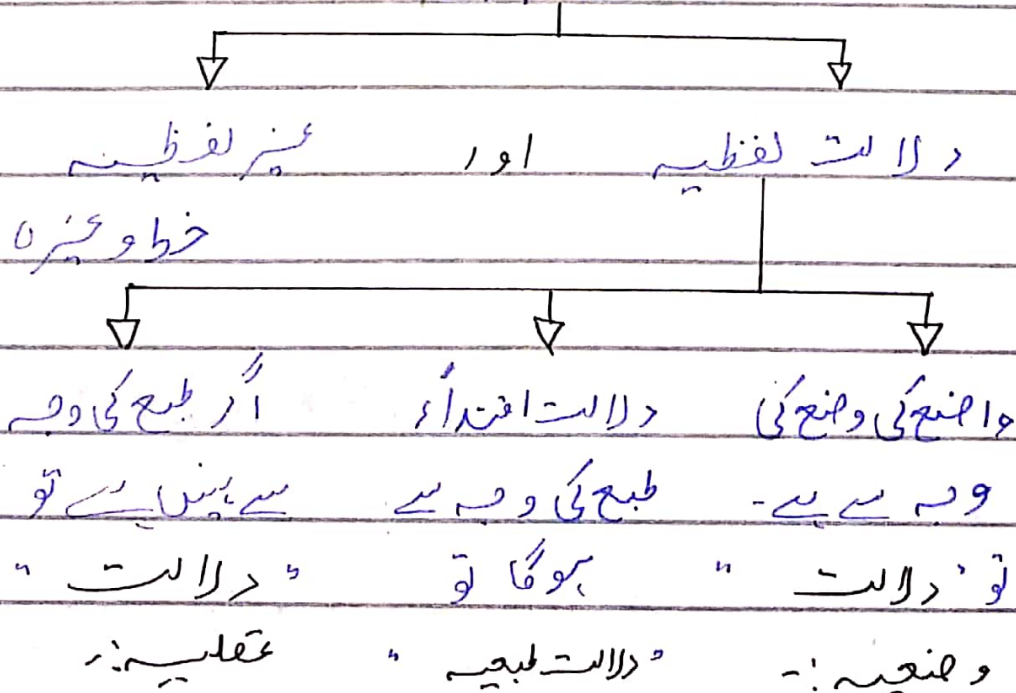 دلالت لفظیہ اور غیر لفظیہ
خط وغیرہ
واضع کی وضع کی
وجہ سے ہے۔
تو "دلالت"
وضعیہ :-
دلالت اقتداًء
طبع کی وجہ سے
ہوگا تو
"دلالت طبعیہ"
اگر طبع کی وجہ
سے نہیں ہے تو
"دلالت"
عقلیہ :-